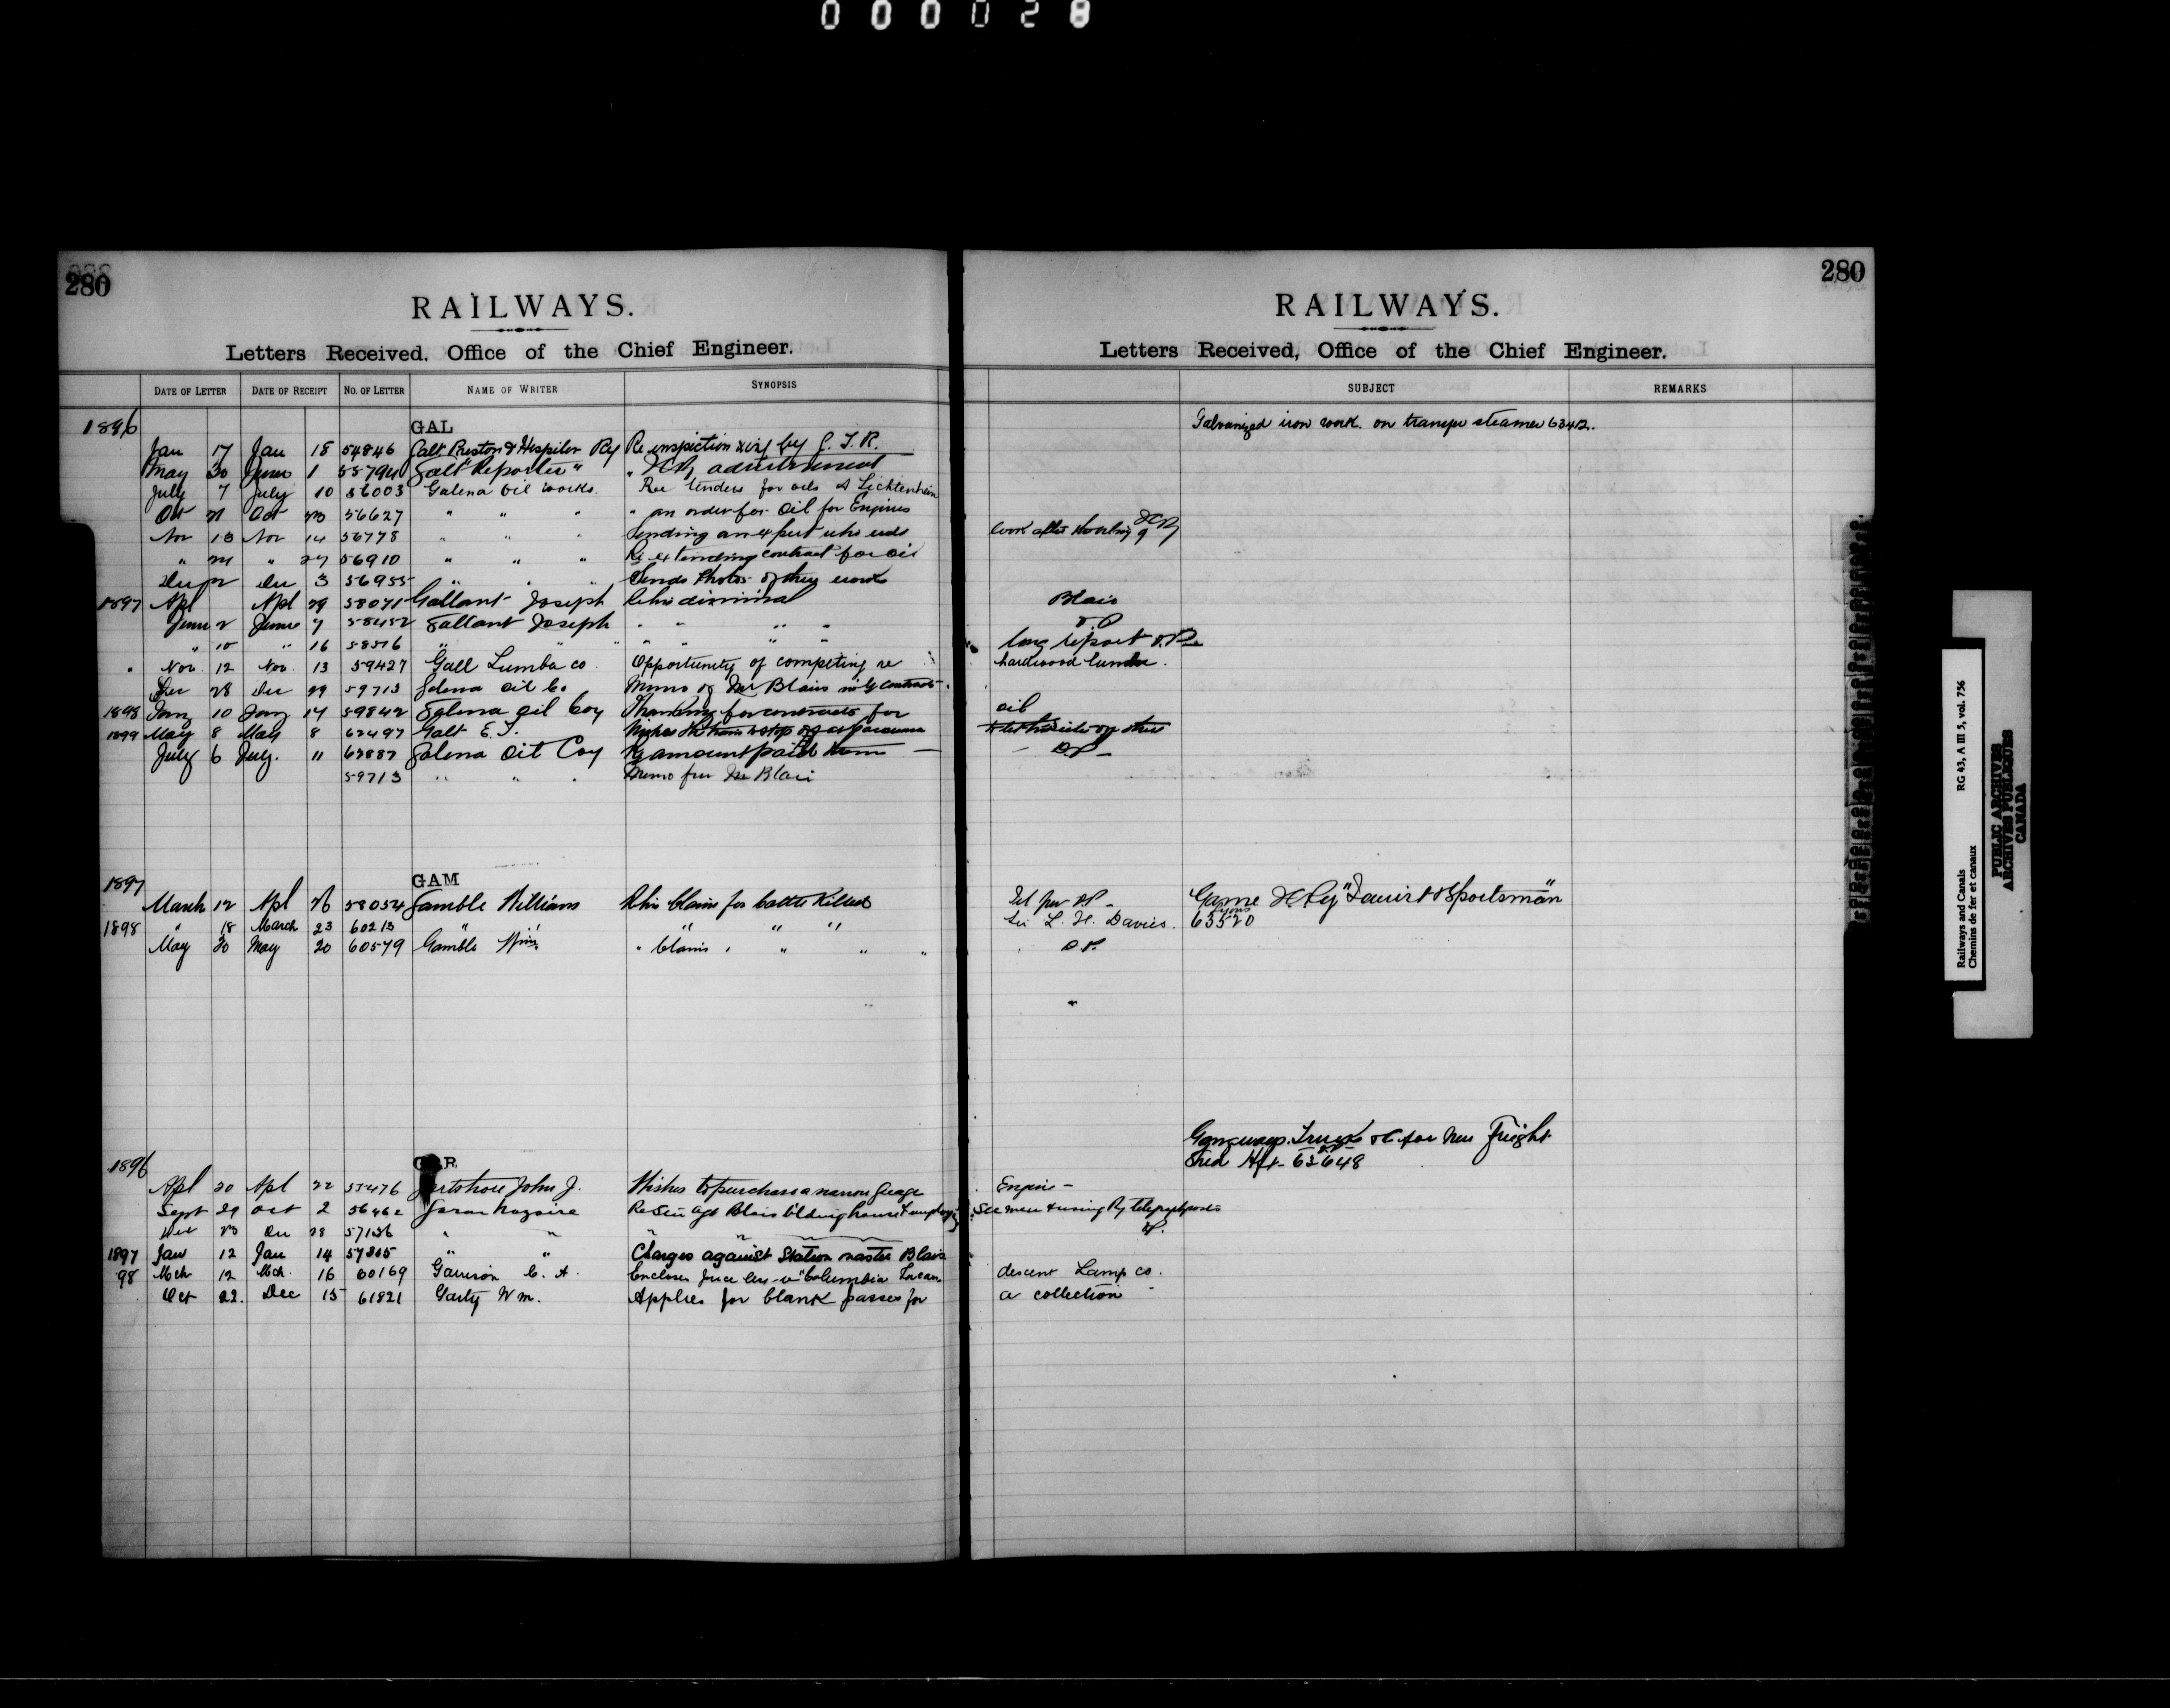 000028
280
RAILWAYS.
Letters Received, Office of the Chief Engineer.
DATE OF LETTER DATE OF RECEIPT NO. OF LETTER NAME OF WRITER SYNOPSIS
1896 GAL
Jan 17 Jan 18 54846 Galt Preston & Hespiler Ry Re inspection by G. T. R.
May 30 June 1 Galt "Reporter" " ICR advertisement
July 7 July 10 56003 Galena Oil works. Re tenders for oils A Lichtenhein
Oct 21 Oct 23 56627 " " " " an order for Oil for Engines
Nov 13 Nov 14 56778 " " " Sending an expert who will
" 24 " 27 56910 " " " Re extending contract for oil
Dec 2 Dec 3 56955 " " " Sends Photos of they works
1897 Apl Apl 29 58071 Gallant Joseph Re his dismissal
June 2 June 7 58452 Gallant Joseph " " " "
" 15 " 16 58516 " " " " " " "
" Nov. 12 Nov. 13 59427 Gall Lumber co. Opportunity of competing re
Dec 28 Dec 29 59713 Galena Oil Co Memo of Mr Blair
1898 Jany 10 Jany 14 59842 Galena Oil Coy Thanking for contracts for
1899 May 8 May 8 62497 Galt E. T.
July 6 July. 11 63887 Galena Oil Coy Re amount paid them
59713 " " " Memo for Mr Blair
1897 GAM
March 12 Apl 26 58034 Gamble William Re his claim for cattle killed
1898 " 18 March 23 60213 " " " " "
May 20 May 20 60579 Gamble Wm. " claims " " " "
1896 GAR
Apl 20 Apl 22 55476 Gartshore John J. Wishes to purchase a narrow Guage
Sept 29 Oct 2 56462 Garon Nazaire Re Stn Agt Blais
Dec 23 Dec 28 57136 " "
1897 Jan 12 Jan 14 57305 " " Charges against Station master Blais
98 Mch 12 Mch. 16 60169 Garrison C. A. Encloses price "Columbia Incan
Oct 22. Dec 15 61821 Garty Wm. Applies for blank passes for
280
RAILWAYS.
Letters Received, Office of the Chief Engineer.
SUBJECT REMARKS
Galvanized iron work. on transfer steamer 63412.
look after working of ICR
Blair
D.P
long report D.P.
hardwood lumber.
oil
D.P. —
Game ICRy "Tourist & Sportsman"
Sir L. H. Davies. 63520
D.P.
"
Gangways. Trucks &c for New Freight
Shed Hfx - 63648
Engine —
men & using Ry telegraph posts
descent Lamp co.
a collection
Railways and Canals RG 43, A III 5, vol. 756
Chemins de fer et canaux
PUBLIC ARCHIVES
ARCHIVES PUBLIQUES
CANADA